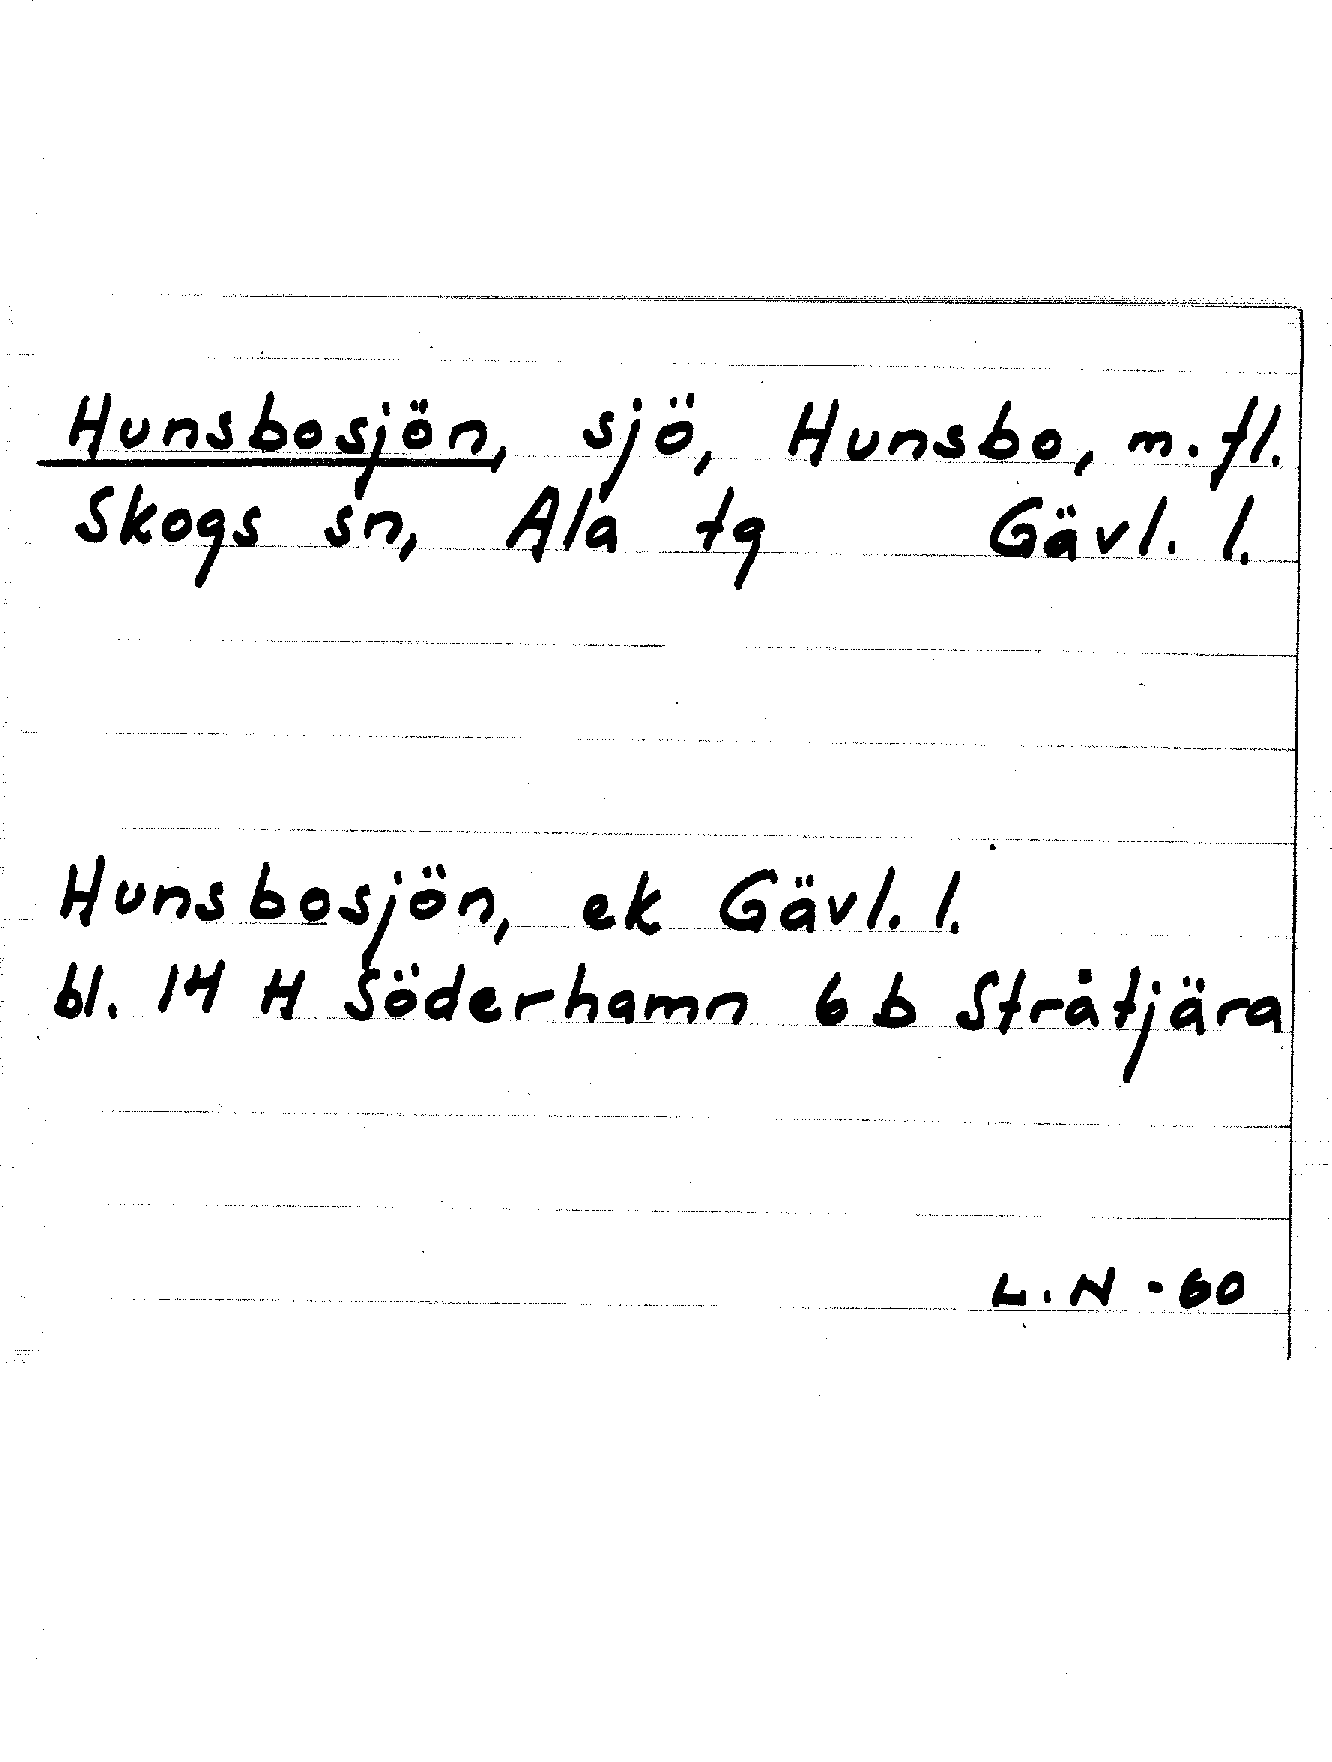 Hunsbosjön, sjö, Hunsbo, m.fl.
Skogs sn, Ala tg Gävl. l.
Hunsbosjön, ek Gävl. l.
bl. 14 H Söderhamn 6 b Stråtjära
L.N - 60